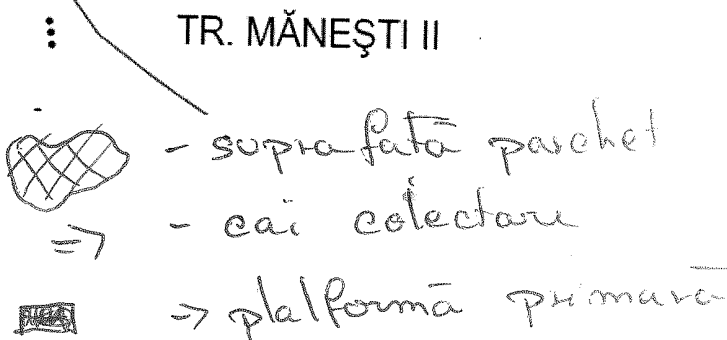 TR. MĂNEŞTI II
- suprafață parchet
- căi colectare
=> platformă primară